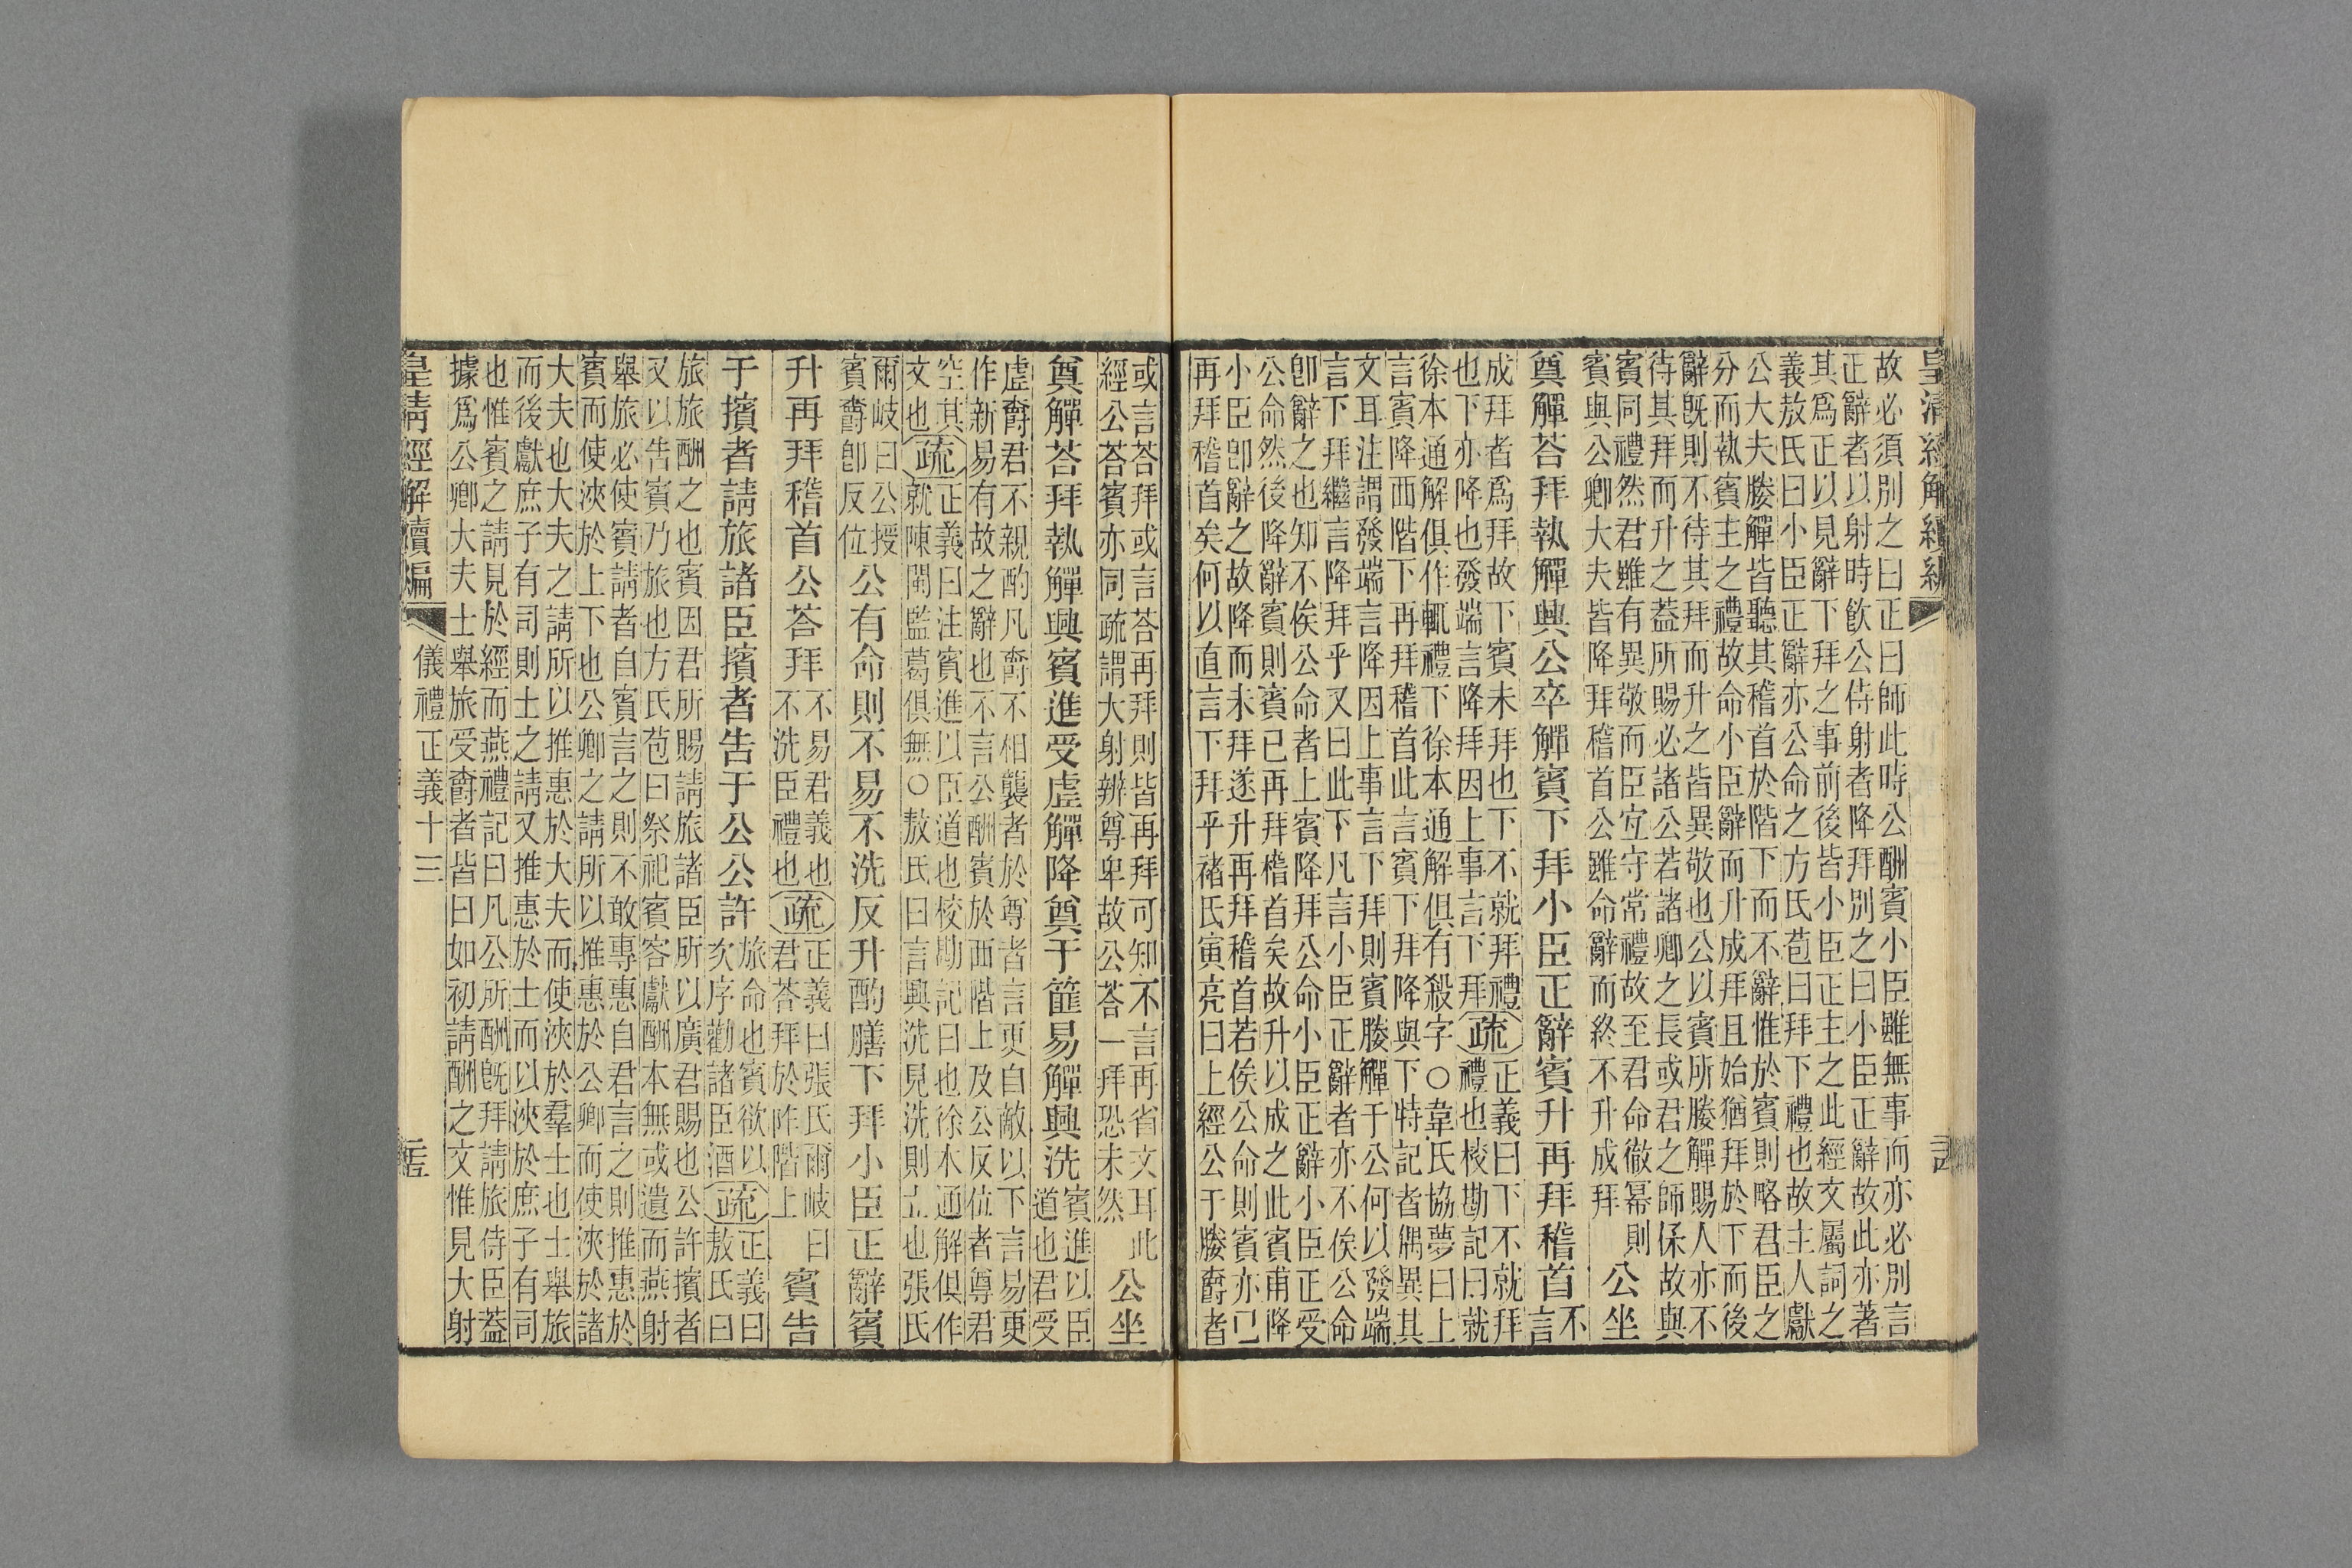 皇清經解續編
故必須別之曰正曰師此時公酬賓小臣雖無事而亦必別言
正辭者以射時飮公侍射者降拜別之曰小臣正辭故此亦著
其爲正以見辭下拜之事前後皆小臣正主之此經文屬詞之
義敖氏曰小臣正辭亦公命之方氏苞曰拜下禮也故主人獻
公大夫媵觶皆聽其稽首於階下而不辭惟於賓則略君臣之
分而執賓主之禮故命小臣辭而升成拜且始猶拜於下而後
辭旣則不待其拜而升之皆異敬也公以賓所媵觶賜人亦不
待其拜而升之蓋所賜必諸公若諸卿之長或君之師保故與
賓同禮然君雖有異敬而臣宐守常禮故至君命徹冪則
賓與公卿大夫皆降拜稽首公雖命辭而終不升成拜
公坐
奠觶荅拜執觶興公卒觶賓下拜小臣正辭賓升再拜稽首
不
言
成拜者爲拜故下賓未拜也下不就拜禮
也下亦降也發端言降拜因上事言下拜
疏
正義曰下不就拜
禮也校勘記曰就
徐本通解俱作輒禮下徐本通解俱有殺字○韋氏協夢曰上
言賓降西階下再拜稽首此言賓下拜降與下特記者偶異其
文耳注謂發端言降因上事言下拜則賓媵觶于公何以發端
言下拜繼言降拜乎又曰此下凡言小臣正辭者亦不俟公命
卽辭之也知不俟公命者上賓降拜公命小臣正辭小臣正受
公命然後降辭賓則賓已再拜稽首矣故升以成之此賓甫降
小臣卽辭之故降而未拜遂升再拜稽首若俟公命則賓亦已
再拜稽首矣何以直言下拜乎褚氏寅亮曰上經公于媵爵者
或言荅拜或言荅再拜則皆再拜可知不言再省文耳此
經公荅賓亦同疏謂大射辨尊卑故公荅一拜恐未然
公坐
奠觶荅拜執觶興賓進受虛觶降奠于篚易觶興洗
賓進以臣
道也君受
虛爵君不親酌凡爵不相襲者於尊者言更自敵以下言易更
作新易有故之辭也不言公酬賓於西階上及公反位者尊君
空其
文也
疏
正義曰注賓進以臣道也校勘記曰也徐本通解俱作
就陳閩監葛俱無○敖氏曰言興洗見洗則立也張氏
爾岐曰公授
賓爵卽反位
公有命則不易不洗反升酌膳下拜小臣正辭賓
升再拜稽首公荅拜
不易君義也
不洗臣禮也
疏
正義曰張氏爾岐曰
君荅拜於阼階上
賓告
于擯者請旅諸臣擯者告于公公許
旅命也賓欲以
次序勸諸臣酒
疏
正義曰
敖氏曰
旅旅酬之也賓因君所賜請旅諸臣所以廣君賜也公許擯者
又以告賓乃旅也方氏苞曰祭祀賓客獻酬本無或遺而燕射
舉旅必使賓請者自賓言之則不敢專惠自君言之則推惠於
賓而使浹於上下也公卿之請所以推惠於公卿而使浹於諸
大夫也大夫之請所以推惠於大夫而使浹於羣士也士舉旅
而後獻庶子有司則士之請又推惠於士而以浹於庶子有司
也惟賓之請見於經而燕禮記曰凡公所酬旣拜請旅侍臣蓋
據爲公卿大夫士舉旅受爵者皆曰如初請酬之文惟見大射
皇清經解續編
儀禮正義十三